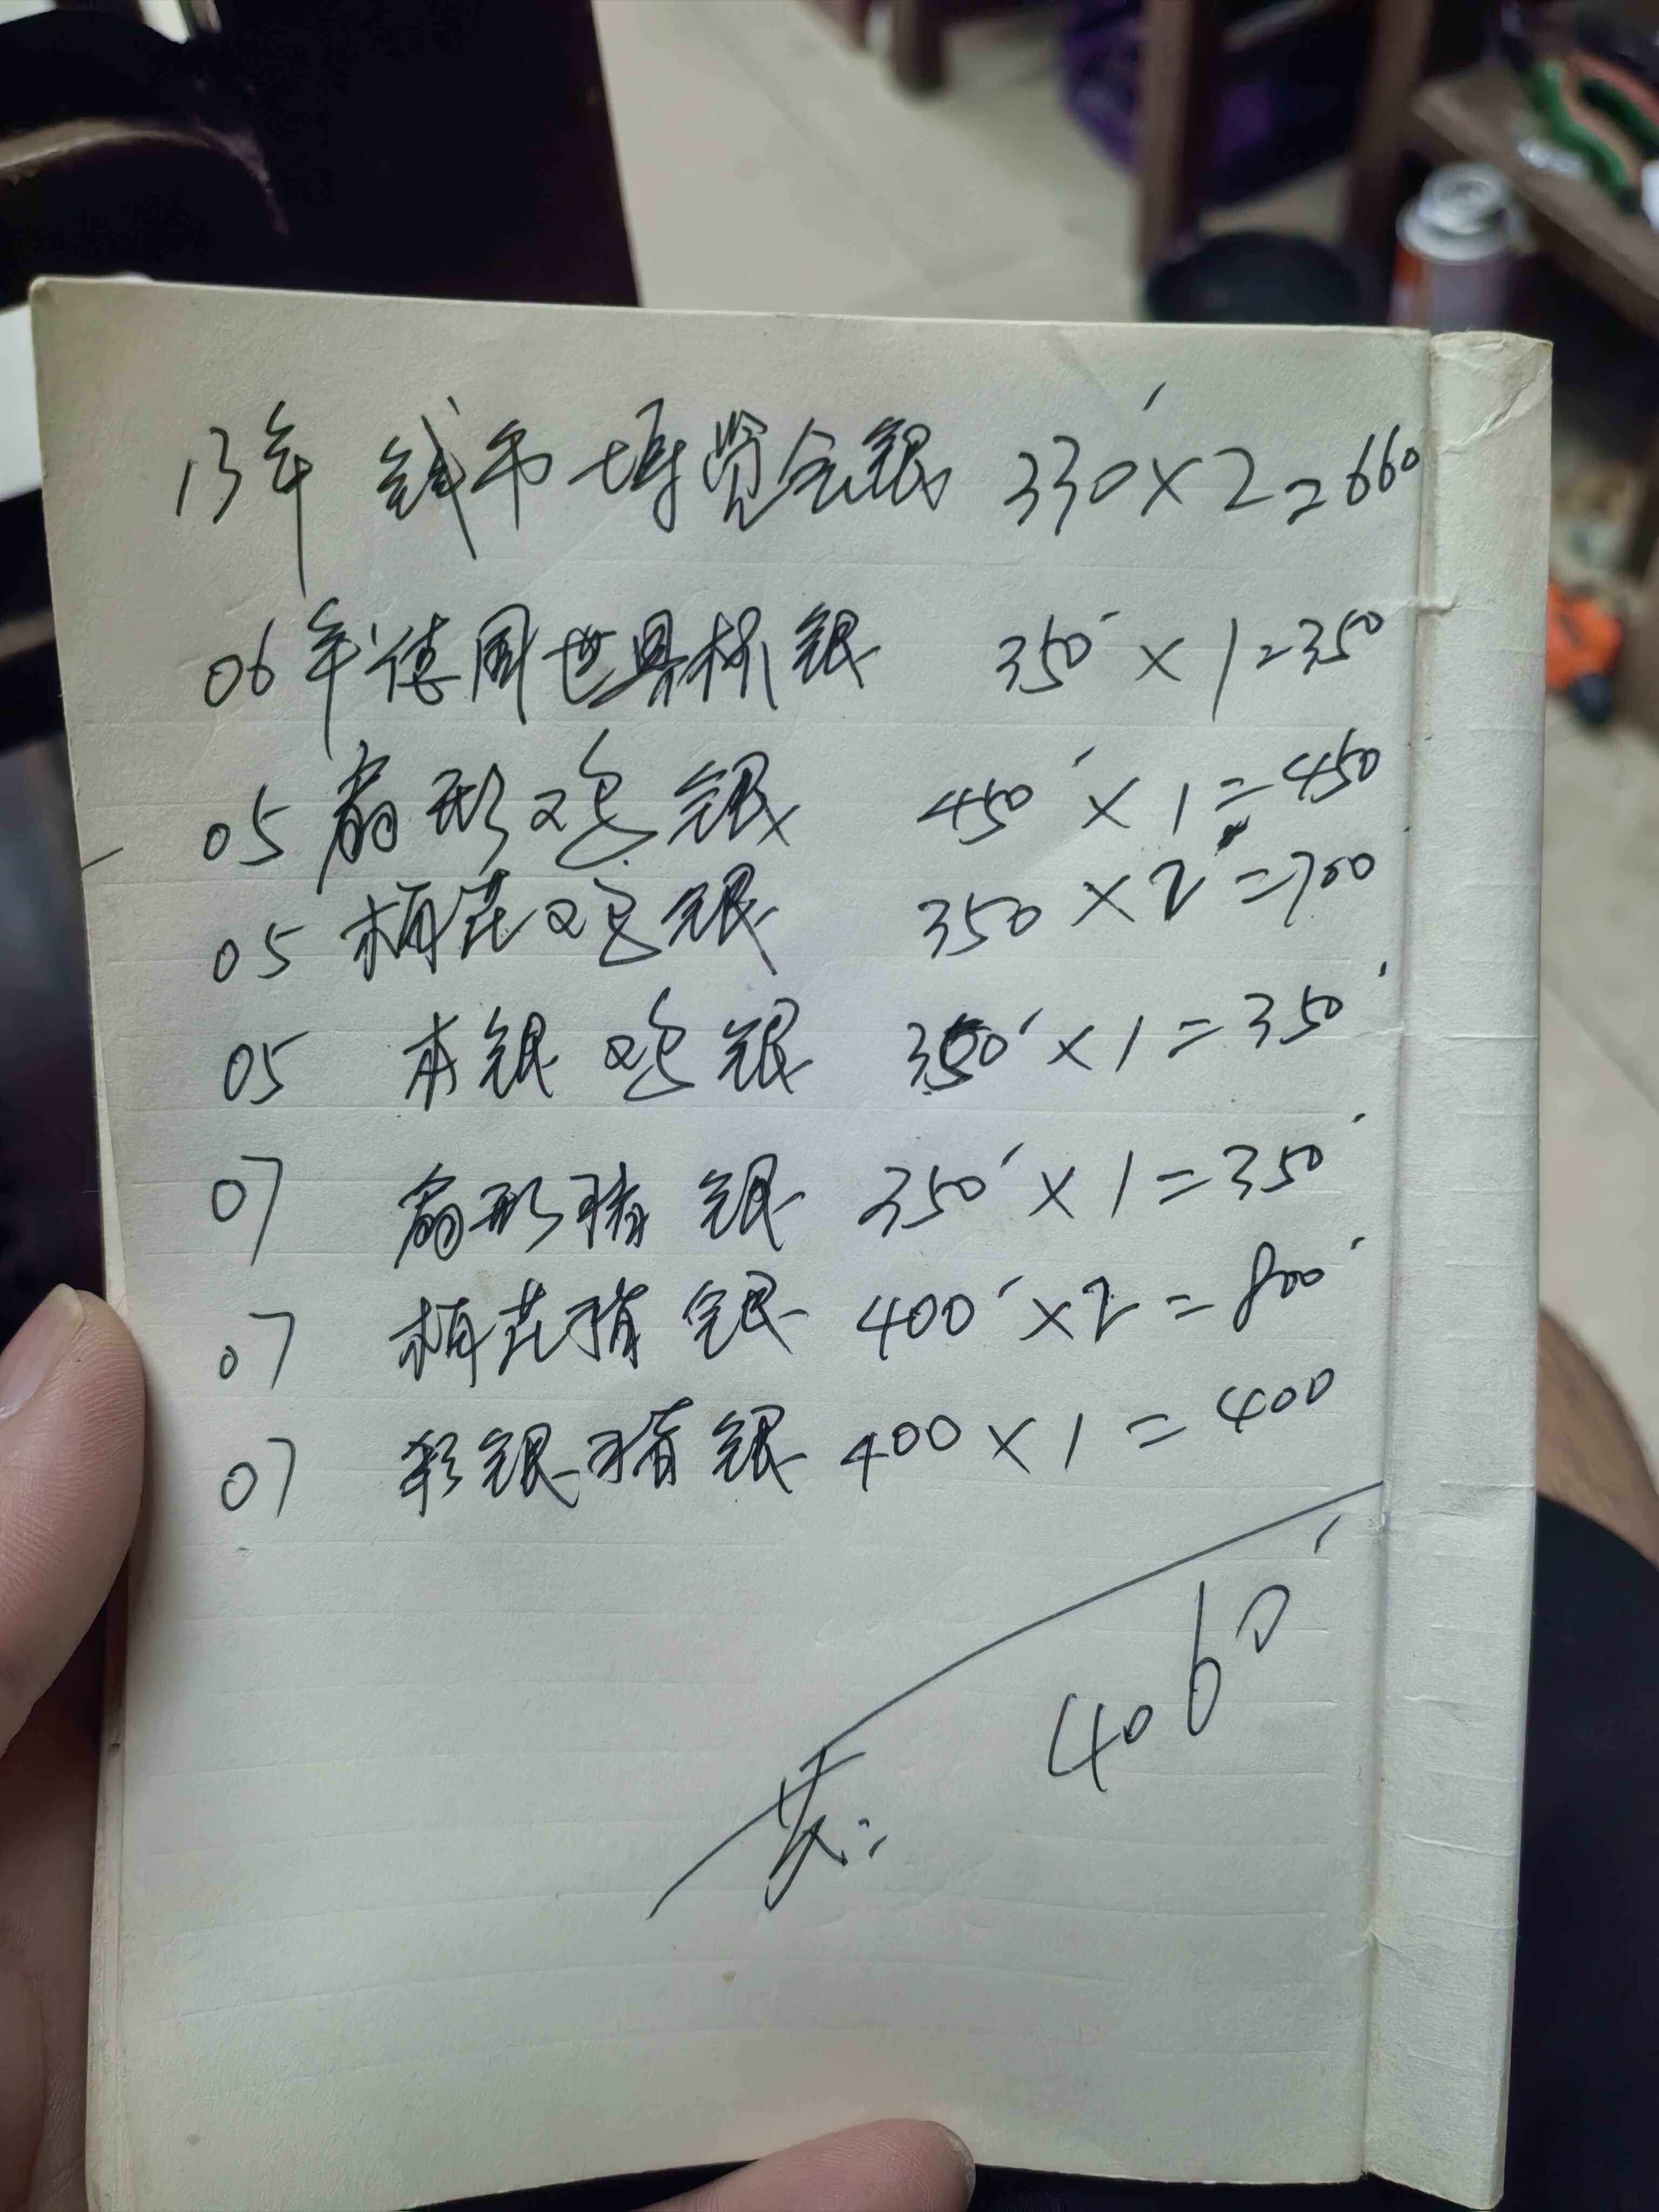 13年 钱币博览会银 330×2=660
06年德国世界杯银 350×1=350
05扇形鸡银 450×1=450
05梅花鸡银 350×2=700
05 本银鸡银 350×1=350
07 扇形猪银 350×1=350
07 梅花猪银 400×2=800
07 彩银猪银 400×1=400
共: 4060